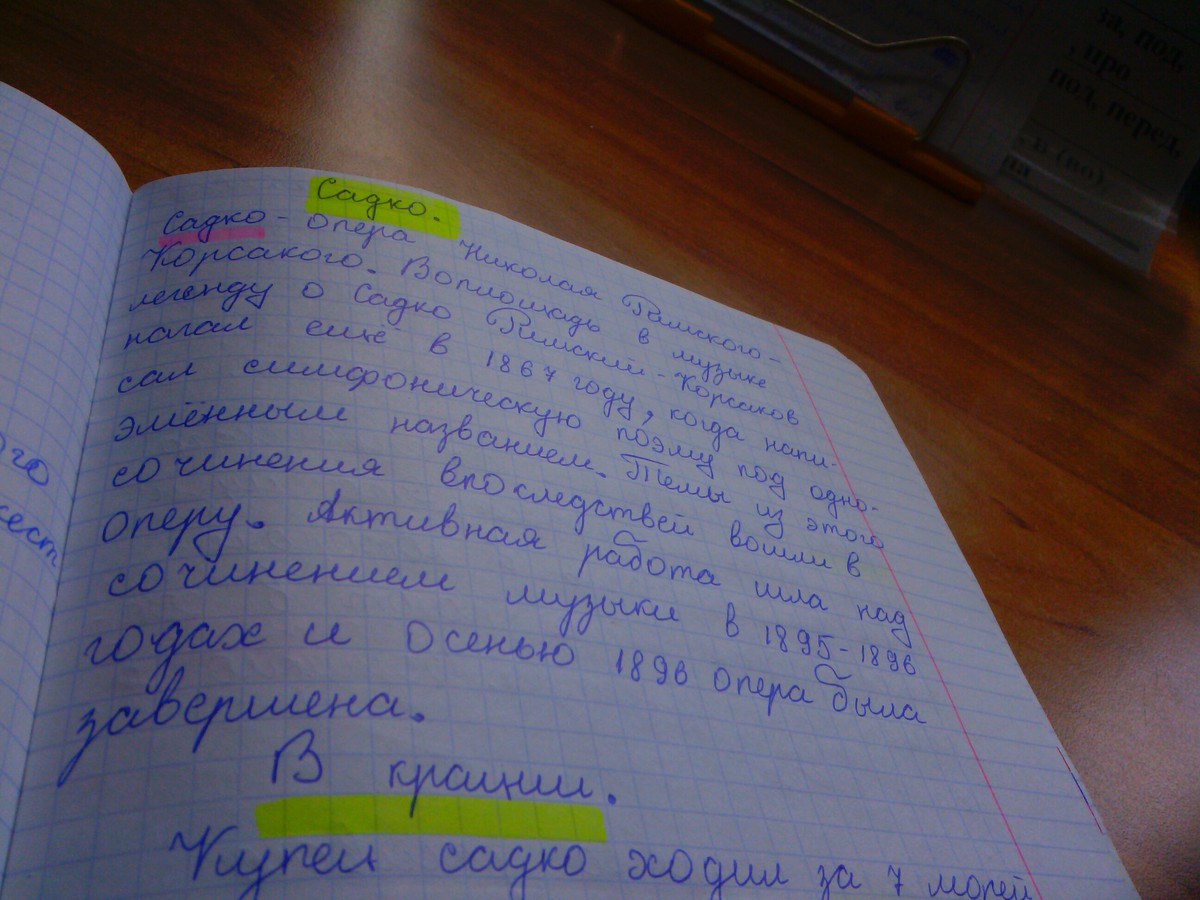 Садко.
Садко - опера Николая Римского-
Корсакого. Воплощадь в музыке
легенду о Садко Римский-Корсаков
начал ещё в 1867 году, когда напи-
сал симфоническую поэму под одно-
эмённым названием. Темы из этого
сочинения впоследствей вошли в
оперу. Активная работа шла над
сочинением музыки в 1895-1896
годах и осенью 1896 опера была
завершена.
В крации.
Купец садко ходил за 7 морей
ого
сест
за, под,
, про
под, перед,
в (во)
на